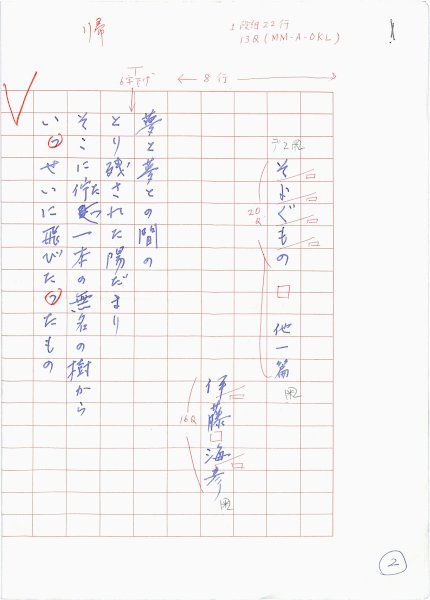 1段組22行
13Q(MM-A-OKL)
6字下げ
8行
そよぐもの 他一篇
20Q
伊藤 海彦
16Q
夢と夢との間の
とり残された陽だまり
そこに佇つ一本の無名の樹から
いっせいに飛びたったもの
2